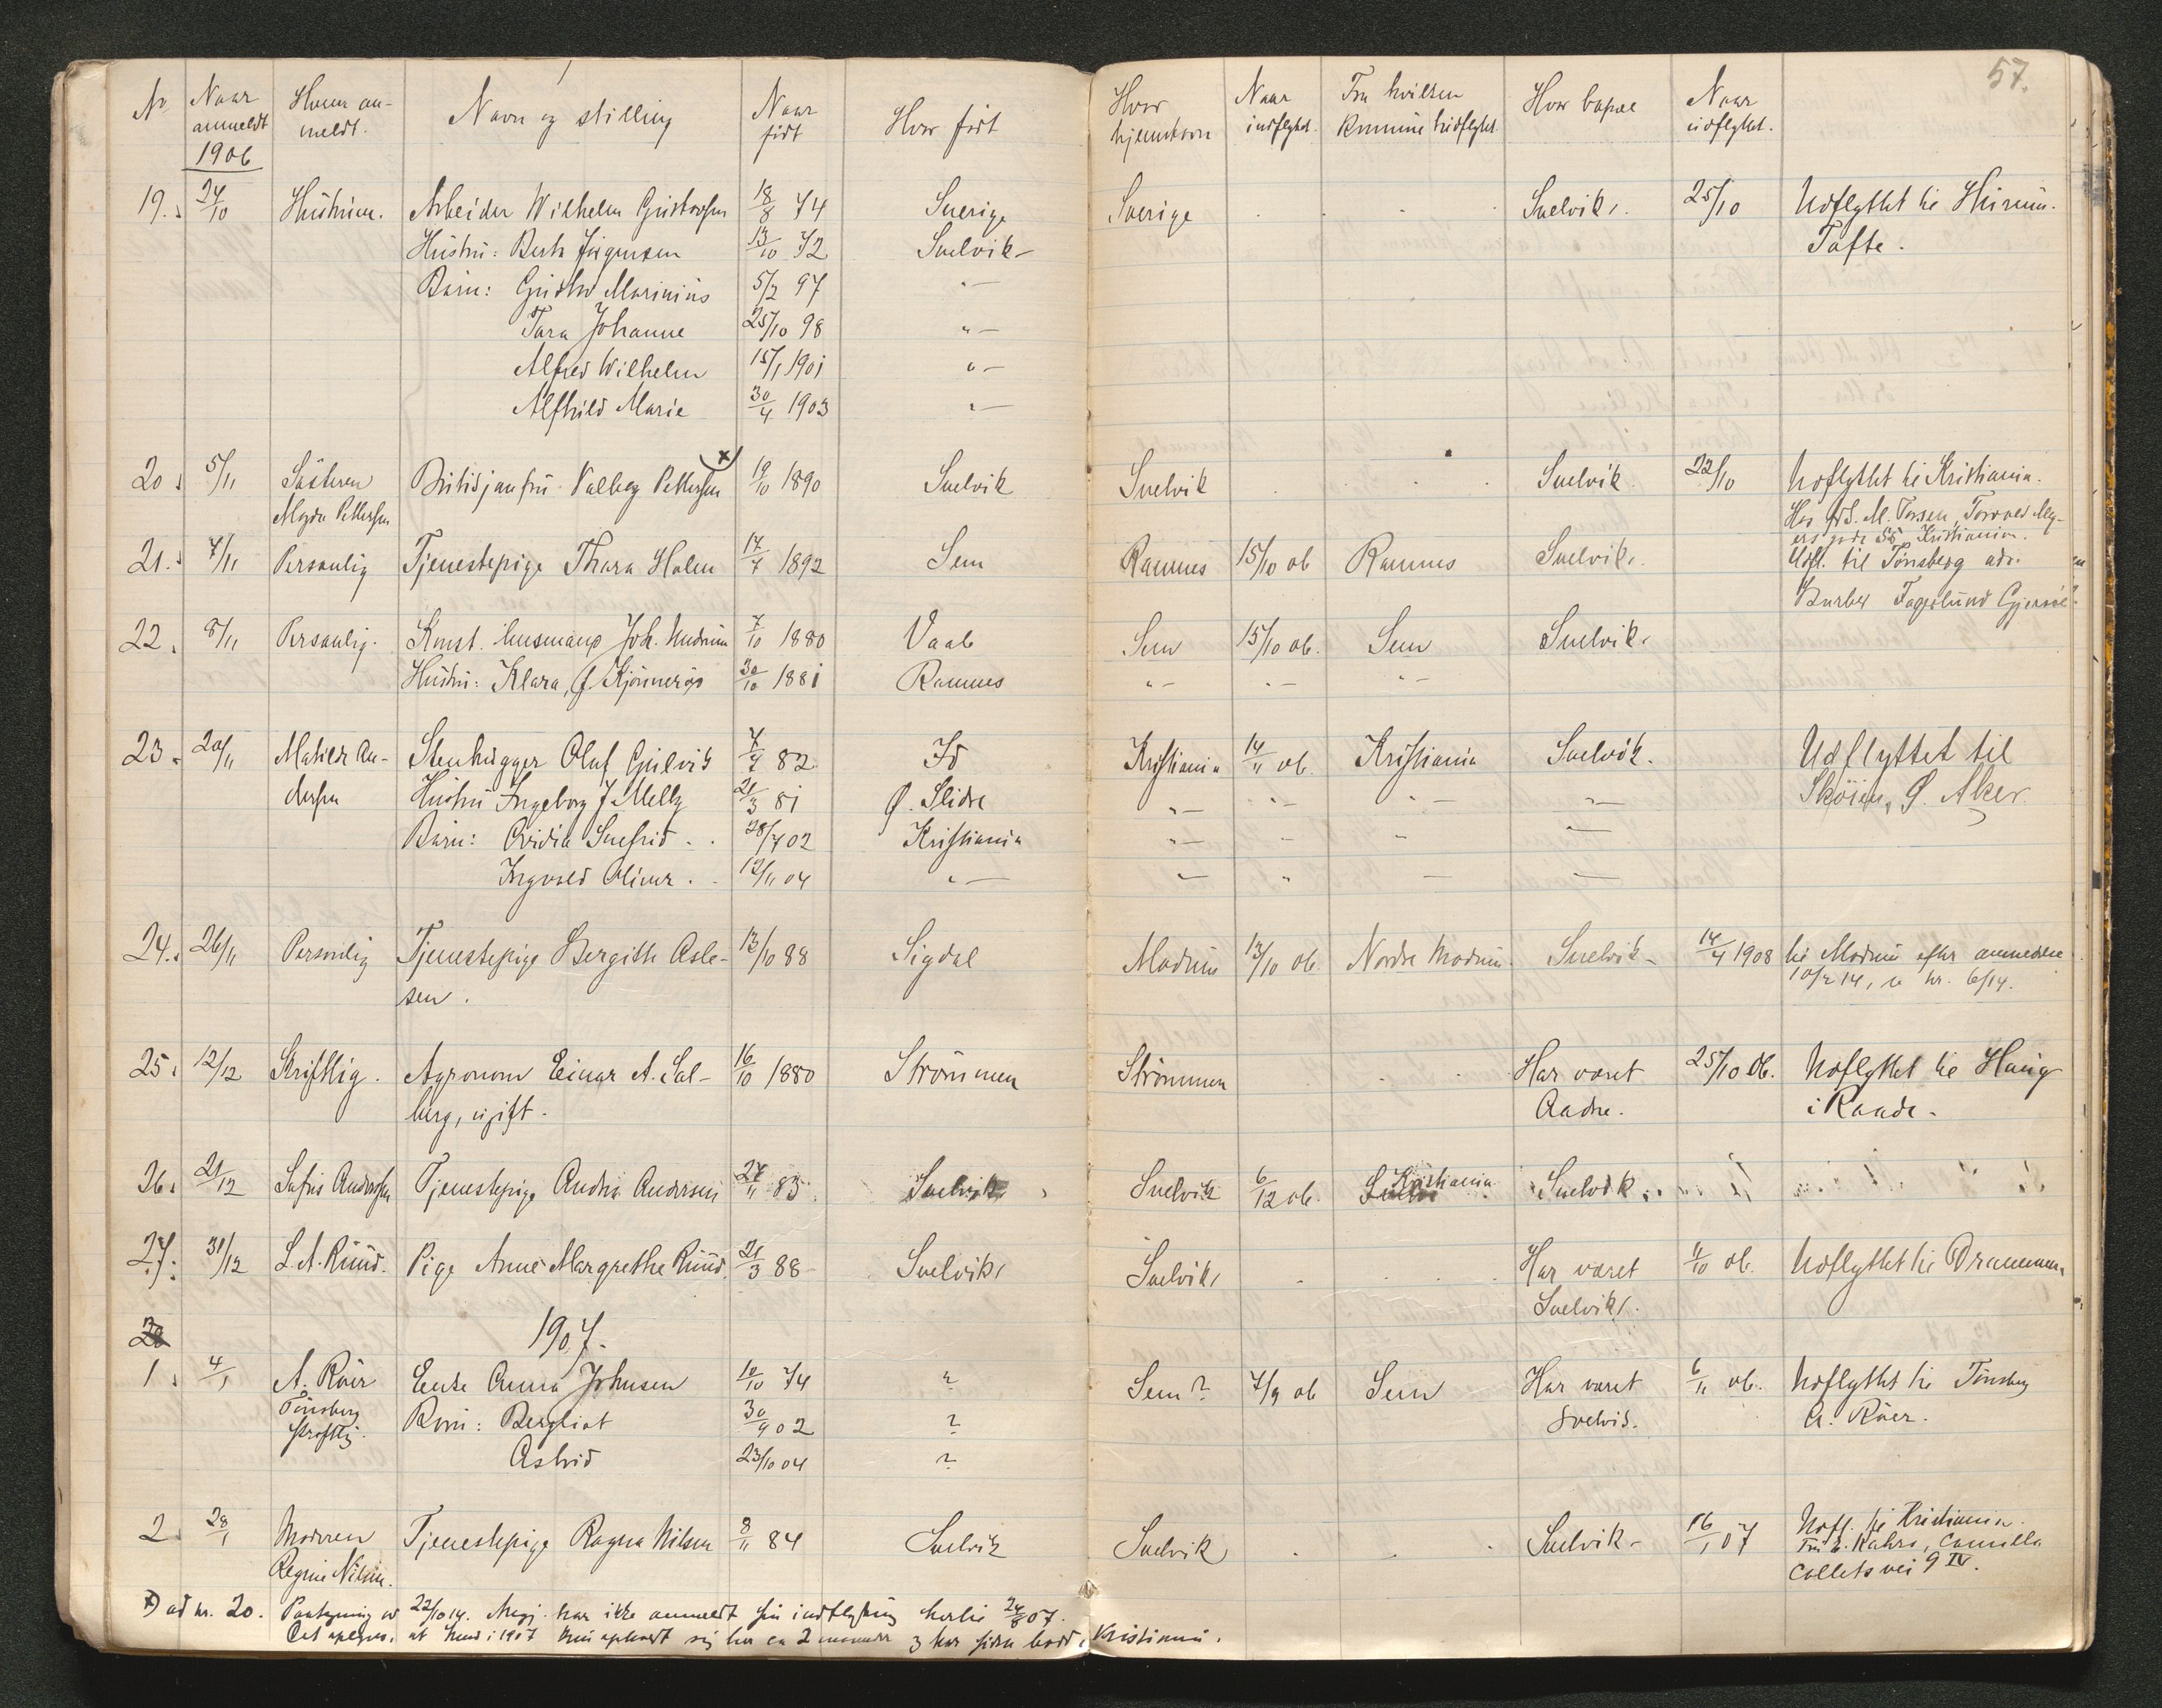 57.
No. Naar anmeldt Hvem anmeldt. Navn og stilling Naar født Hvor født Hvor hjemstavn Naar indflyttet. Fra hvilken kommune indflyttet. Hvor bopæl Naar udflyttet.
1906
19. 24/10 Hustruen. Arbeider Wilhelm Gustavsen 18/8 74 Sverige Sverige Svelvik. 25/10 Udflyttet til Hurum.
Hustru: Berta Jørgensen 13/10 72 Svelvik - Tofte.
Barn: Gustav Marinius 5/2 97 "-
Tara Johanne 25/10 98 "-
Alfred Wilhelm 15/1 1901 "-
Alfhild Marie 30/4 1903 "-
20. 5/11 Søsteren Butikjomfru Valbog Pettersen x) 19/10 1890 Svelvik Svelvik Svelvik. 22/10 Udflyttet til Kristiania.
Magda Pettersen Hos M. Torvald Mey-
ers gade 58 Kristiania.
21. 7/11 Personlig Tjenestepige Thara Holm 17/7 1892 Sem Ramnes 15/10 06 Ramnes Svelvik. Udfl. til Tønsberg adr.
Fagerlund
22. 8/11 Personlig. Joh. 7/10 1880 Vaale Sem 15/10 06. Sem Svelvik.
Hustru: Klara, f. 30/10 1881 Ramnes "- "- "-
23. 20/11 Matilde An- Stenhugger Oluf 7/7 82 Id Kristiania 14/11 06. Kristiania Svelvik. Udflyttet til
dersen Hustru Ingeborg f. 21/3 81 Ø. Slidre "- "- "- "- Skøien, Ø. Aker.
Barn: Ovidia 28/7 02 Kristiania "- "- "- "-
Ingvald Oliver 12/11 04 "- "- " - -
24. 26/11 Personlig Tjenestepige Bergitte Asle- 13/10 88 Sigdal Modum 13/10 06. Nordre Modum Svelvik - 14/4 1908 til Modum efter anmeldelse
sen. 10/2 14, nr. 6/14.
25. 12/12 Skriftlig. Agronom Einar A. Sal- 16/10 1880 Strømmen Strømmen Har været 25/10 06. Udflyttet til Haug
berg, ugift. Aadne. i Raade.
26. 21/12 Andersen Tjenestepige Andrea Andersen 27/11 83 Svelvik Svelvik 6/12 06. Kristiania Svelvik.
27. 31/12 L. A. Ruud. Pige Anne Margrethe Ruud. 21/3 88 Svelvik Svelvik Har været 11/10 06. Udflyttet til Drammen
Svelvik.
28 1907.
1. 4/1 A. Röer Enke Anna Johnsen 10/10 74 ? Sem? 7/9 06 Sem Har været 6/11 06. Udflyttet til Tønsberg
Tønsberg Barn: Bergliot 30/9 02 ? Svelvik. A. Röer.
skriftlig. Astrid 23/10 04 ?
2. 28/1 Moderen Tjenestepige Ragna Nilsen 8/11 84 Svelvik Svelvik Svelvik - 16/1 07 Udfl. til Kristiania.
Regine Nilsen. Camilla
Collets vei 9 IV.
x) ad nr. 20. Paategning av 22/10 14. har ikke anmeldt sin indflytning hertil 24/8 07.
Det oplyses, at hun i 1907 kun opholdt sig her ca 2 maaneder og har siden bodd i Kristiania.